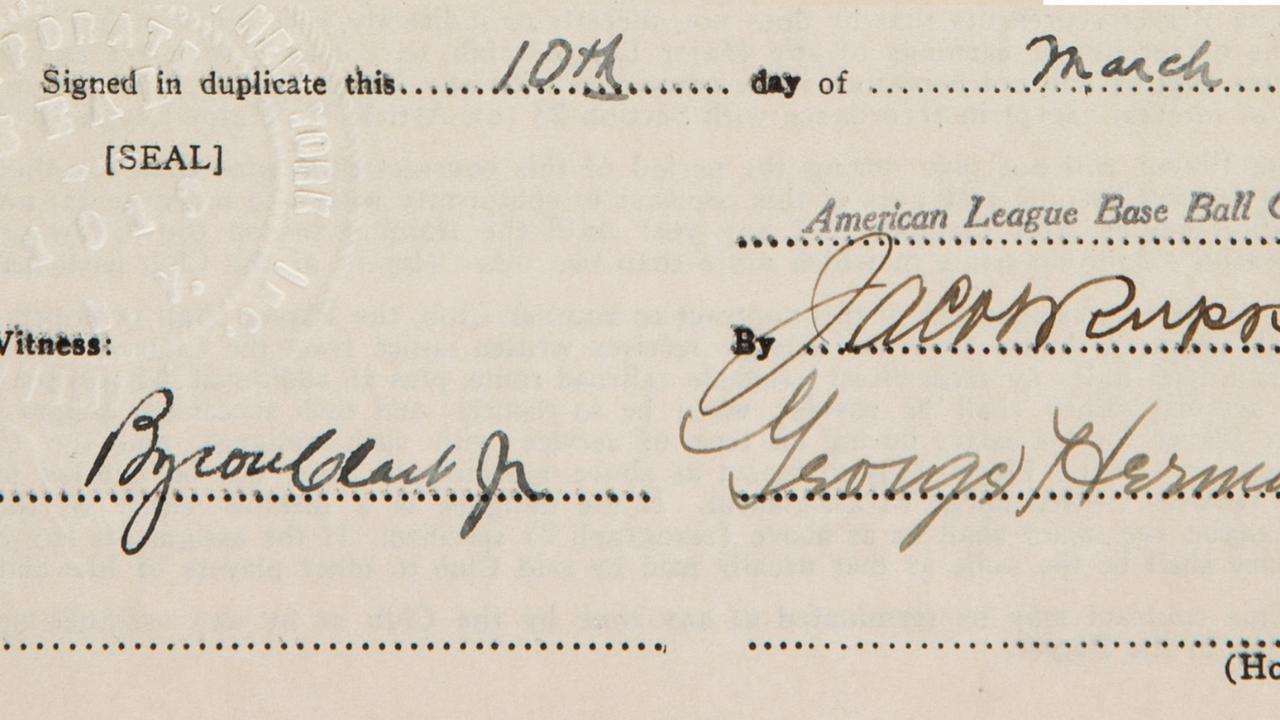 Signed in duplicate this 10th day of March
[SEAL]
American League Base Ball C
Witness:
By Jacob Rupp
Byron Clark Jr
George Herma
(Ho